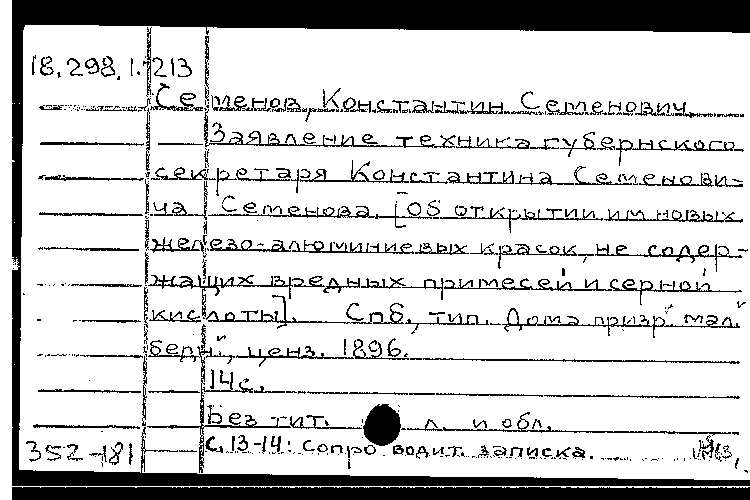 18.298.1.213
Семенов, Константин Семенович
Заявление техника губернского
секретаря Константина Семенови-
ча Семенова. [Об открытии им новых
железо-алюминиевых красок, не содер-
жащих вредных примесей и серной
кислоты]. Спб., тип. Дома призр. мал.
бедн., ценз. 1896.
14 с.
Без тит. л. и обл.
352-181 С. 13-14: Сопроводит. записка.